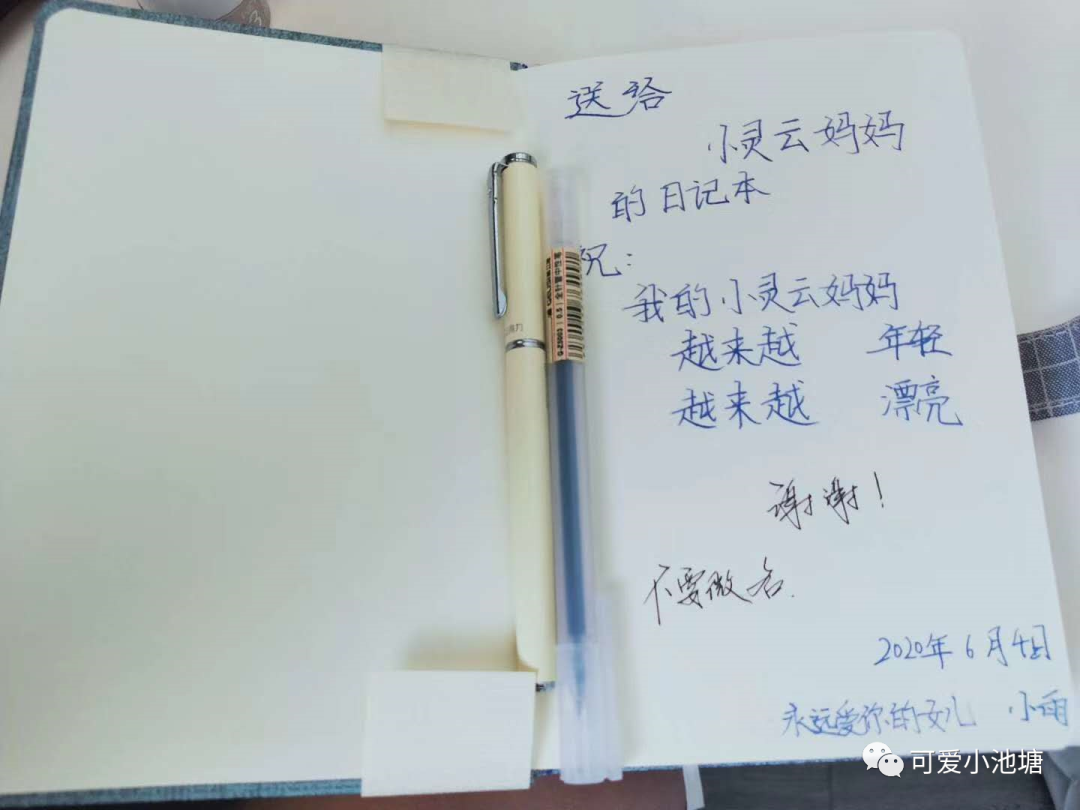 送给
小灵云妈妈
的日记本
祝:
我的小灵云妈妈
越来越 年轻
越来越 漂亮
谢谢!
不要微名.
2020年6月4日
永远爱你的女儿 小雨
可爱小池塘